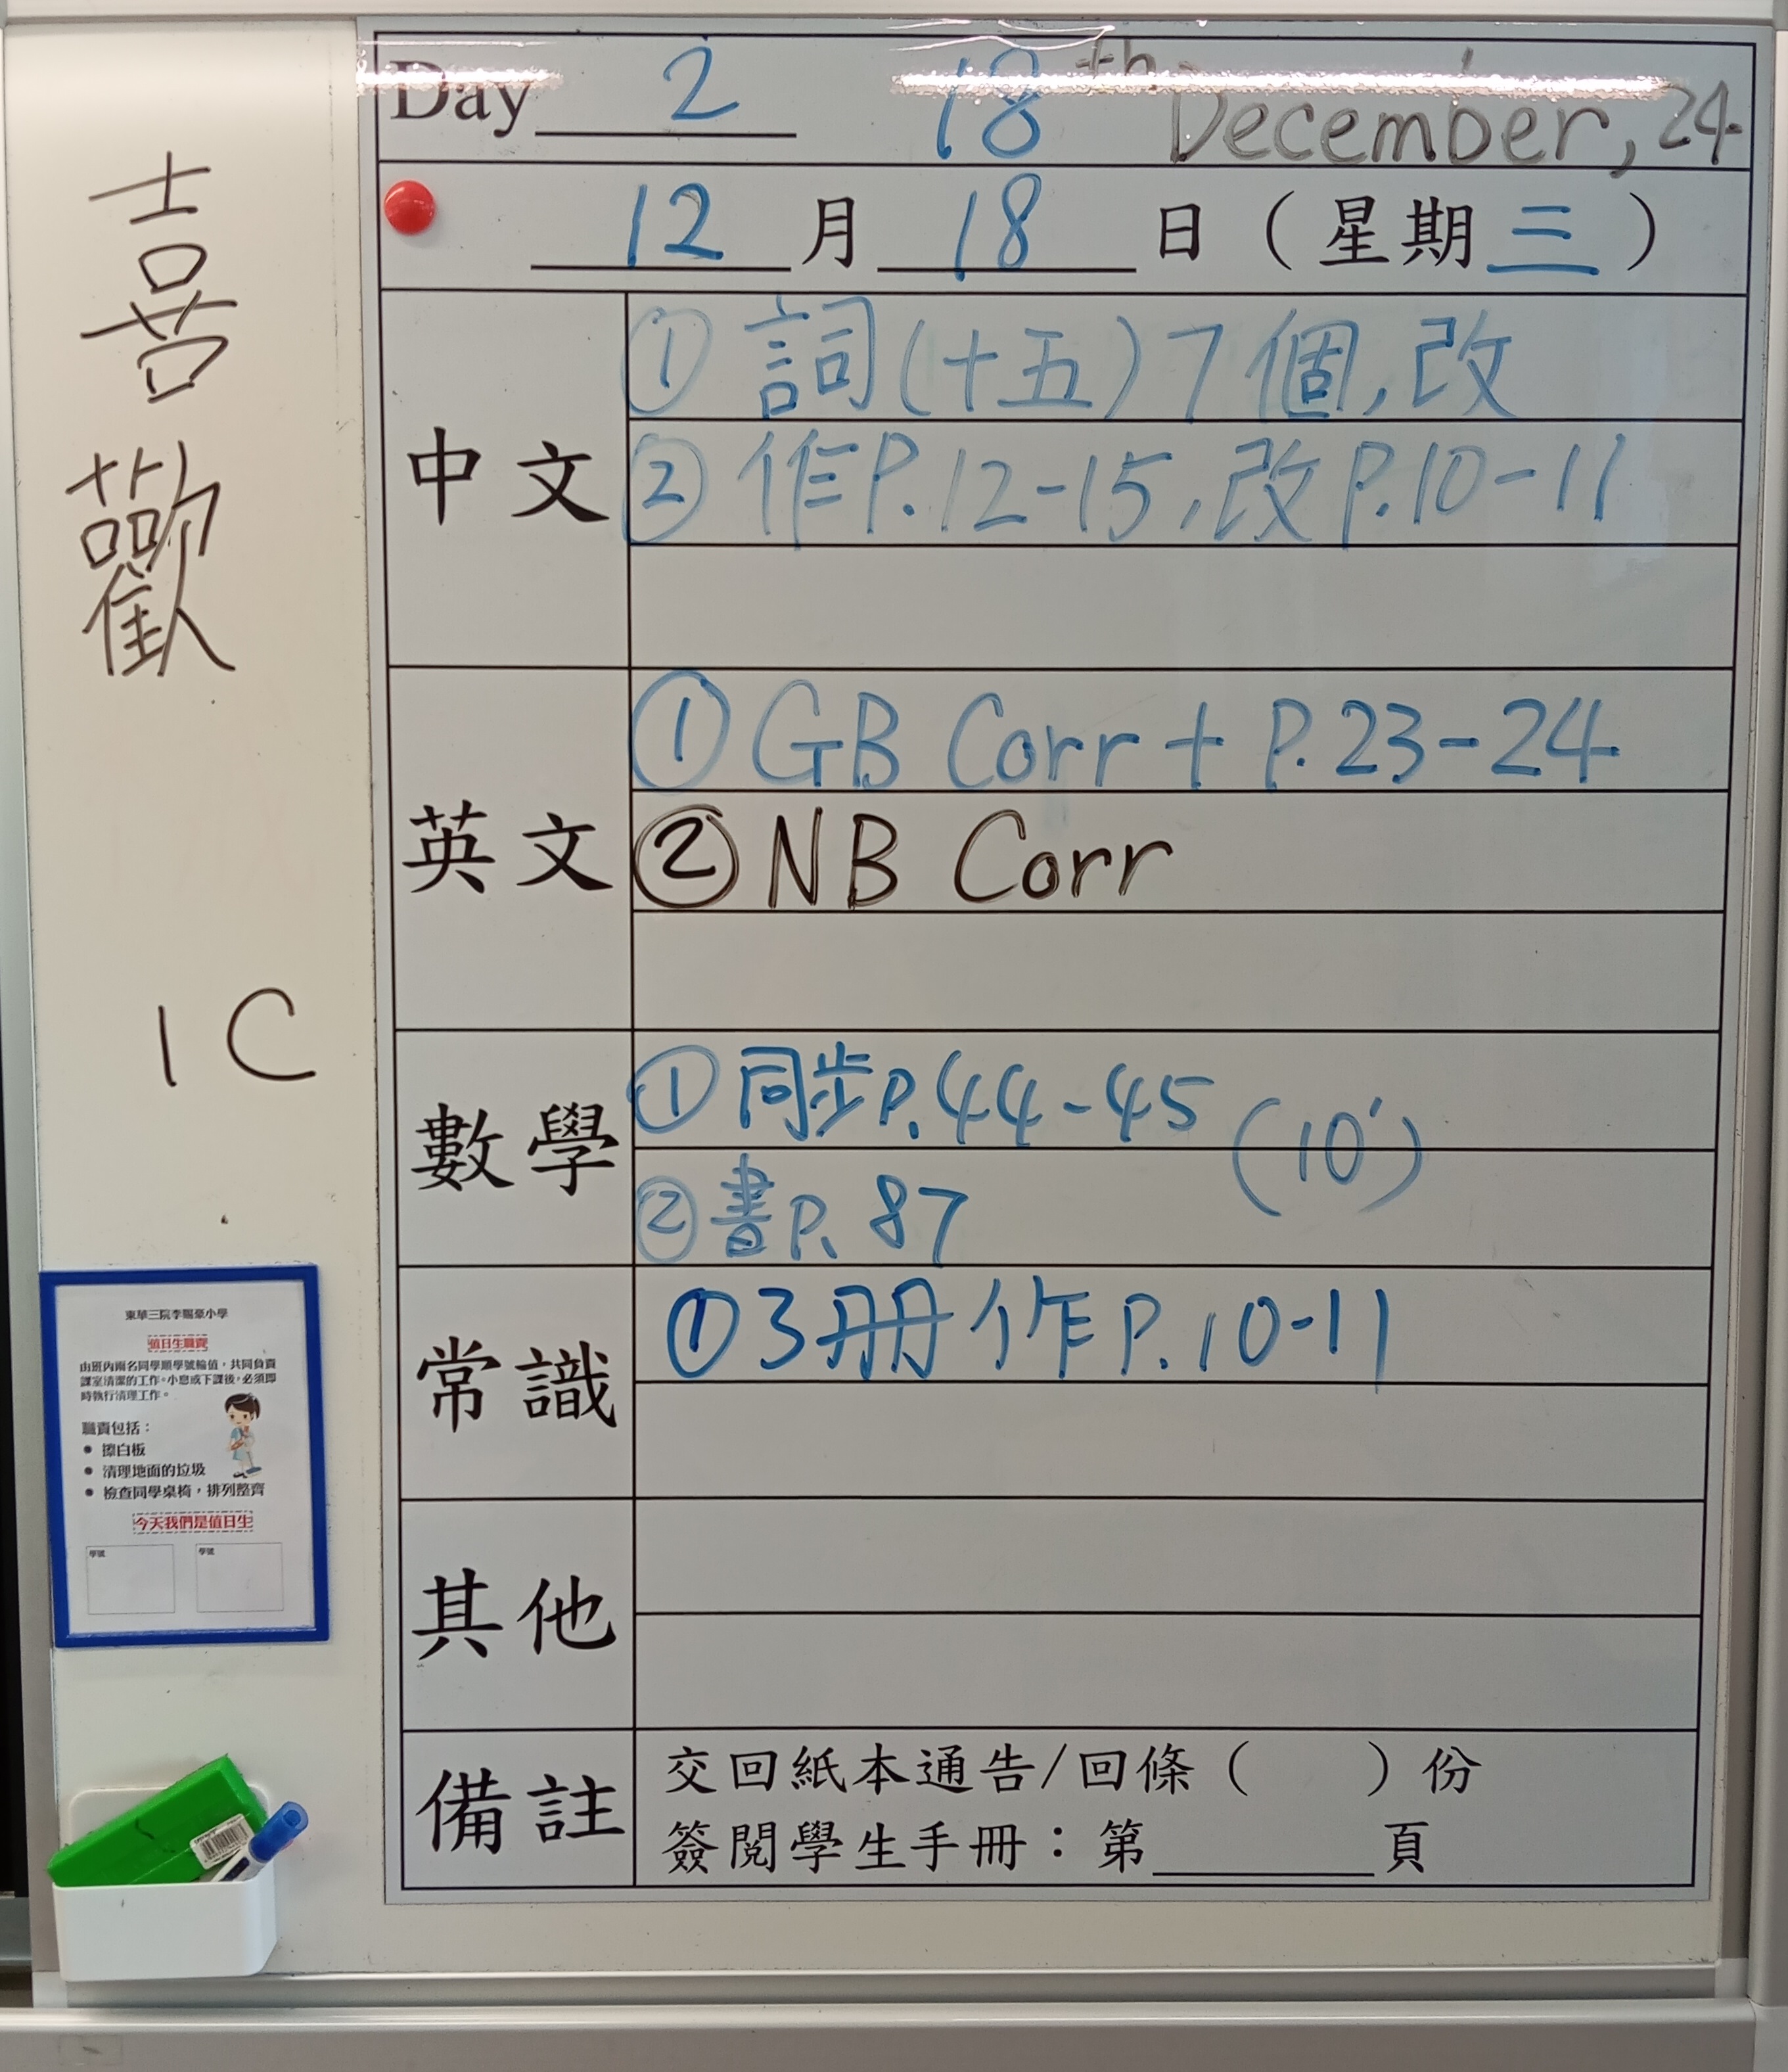 Day 2 18th December, 24
12 月 18 日 ( 星期三 )
中文
① 詞(十五)7個,改
② 作P.12-15,改P.10-11
英文
① GB Corr + P.23-24
② NB Corr
數學
① 同步P.44-45
(10')
② 書P. 87
常識
① 3冊 作 P.10-11
其他
備註
交回紙本通告/回條( )份
簽閱學生手冊:第______頁
喜
歡
1C
東華三院李賜豪小學
值日生職責
由班內兩名同學順學號輪值,共同負責
課室清潔的工作。小息或下課後,必須即
時執行清理工作。
職責包括:
● 擦白板
● 清理地面的垃圾
● 檢查同學桌椅,排列整齊
今天我們是值日生
學號 學號